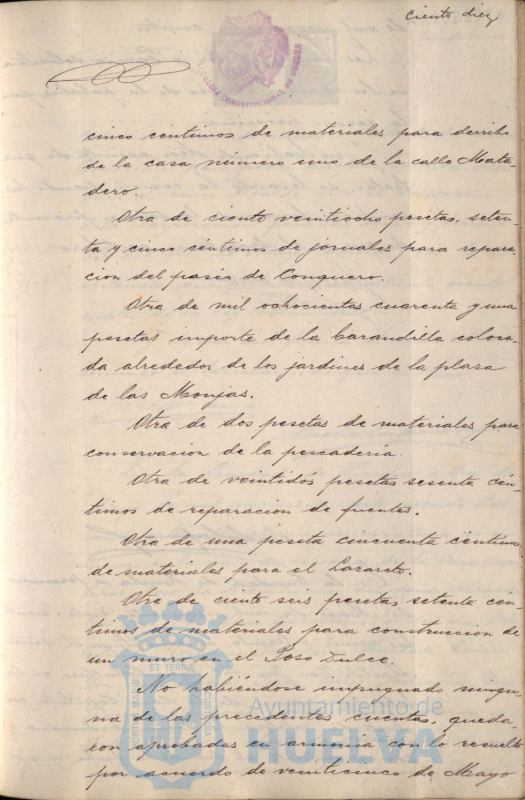 Ciento diez
ALCALDIA CONSTITUCIONAL DE HUELVA
cinco centimos de materiales para derribo
de la casa número uno de la calle Mata-
dero.
Otra de ciento veintiocho pesetas, seten-
ta y cinco céntimos de jornales para repara-
cion del paséo de Conquero.
Otra de mil ochocientas cuarenta y una
pesetas importe de la barandilla coloca-
da alrededor de los jardines de la plaza
de las Monjas.
Otra de dos pesetas de materiales para
conservacion de la pescadería.
Otra de veintidós pesetas sesenta cén-
timos de reparacion de fuentes.
Otra de una peseta cincuenta céntimos
de materiales para el Lazareto.
Otra de ciento seis pesetas setenta cén-
timos de materiales para construccion de
un muro en el Poso Dulce.
No habiéndose impugnado ningu-
na de las precedentes cuentas, queda-
ron aprobadas en armonia con lo resuelto
por acuerdo de veinticinco de Mayo
ET TERRÆ
Ayuntamiento de
HUELVA